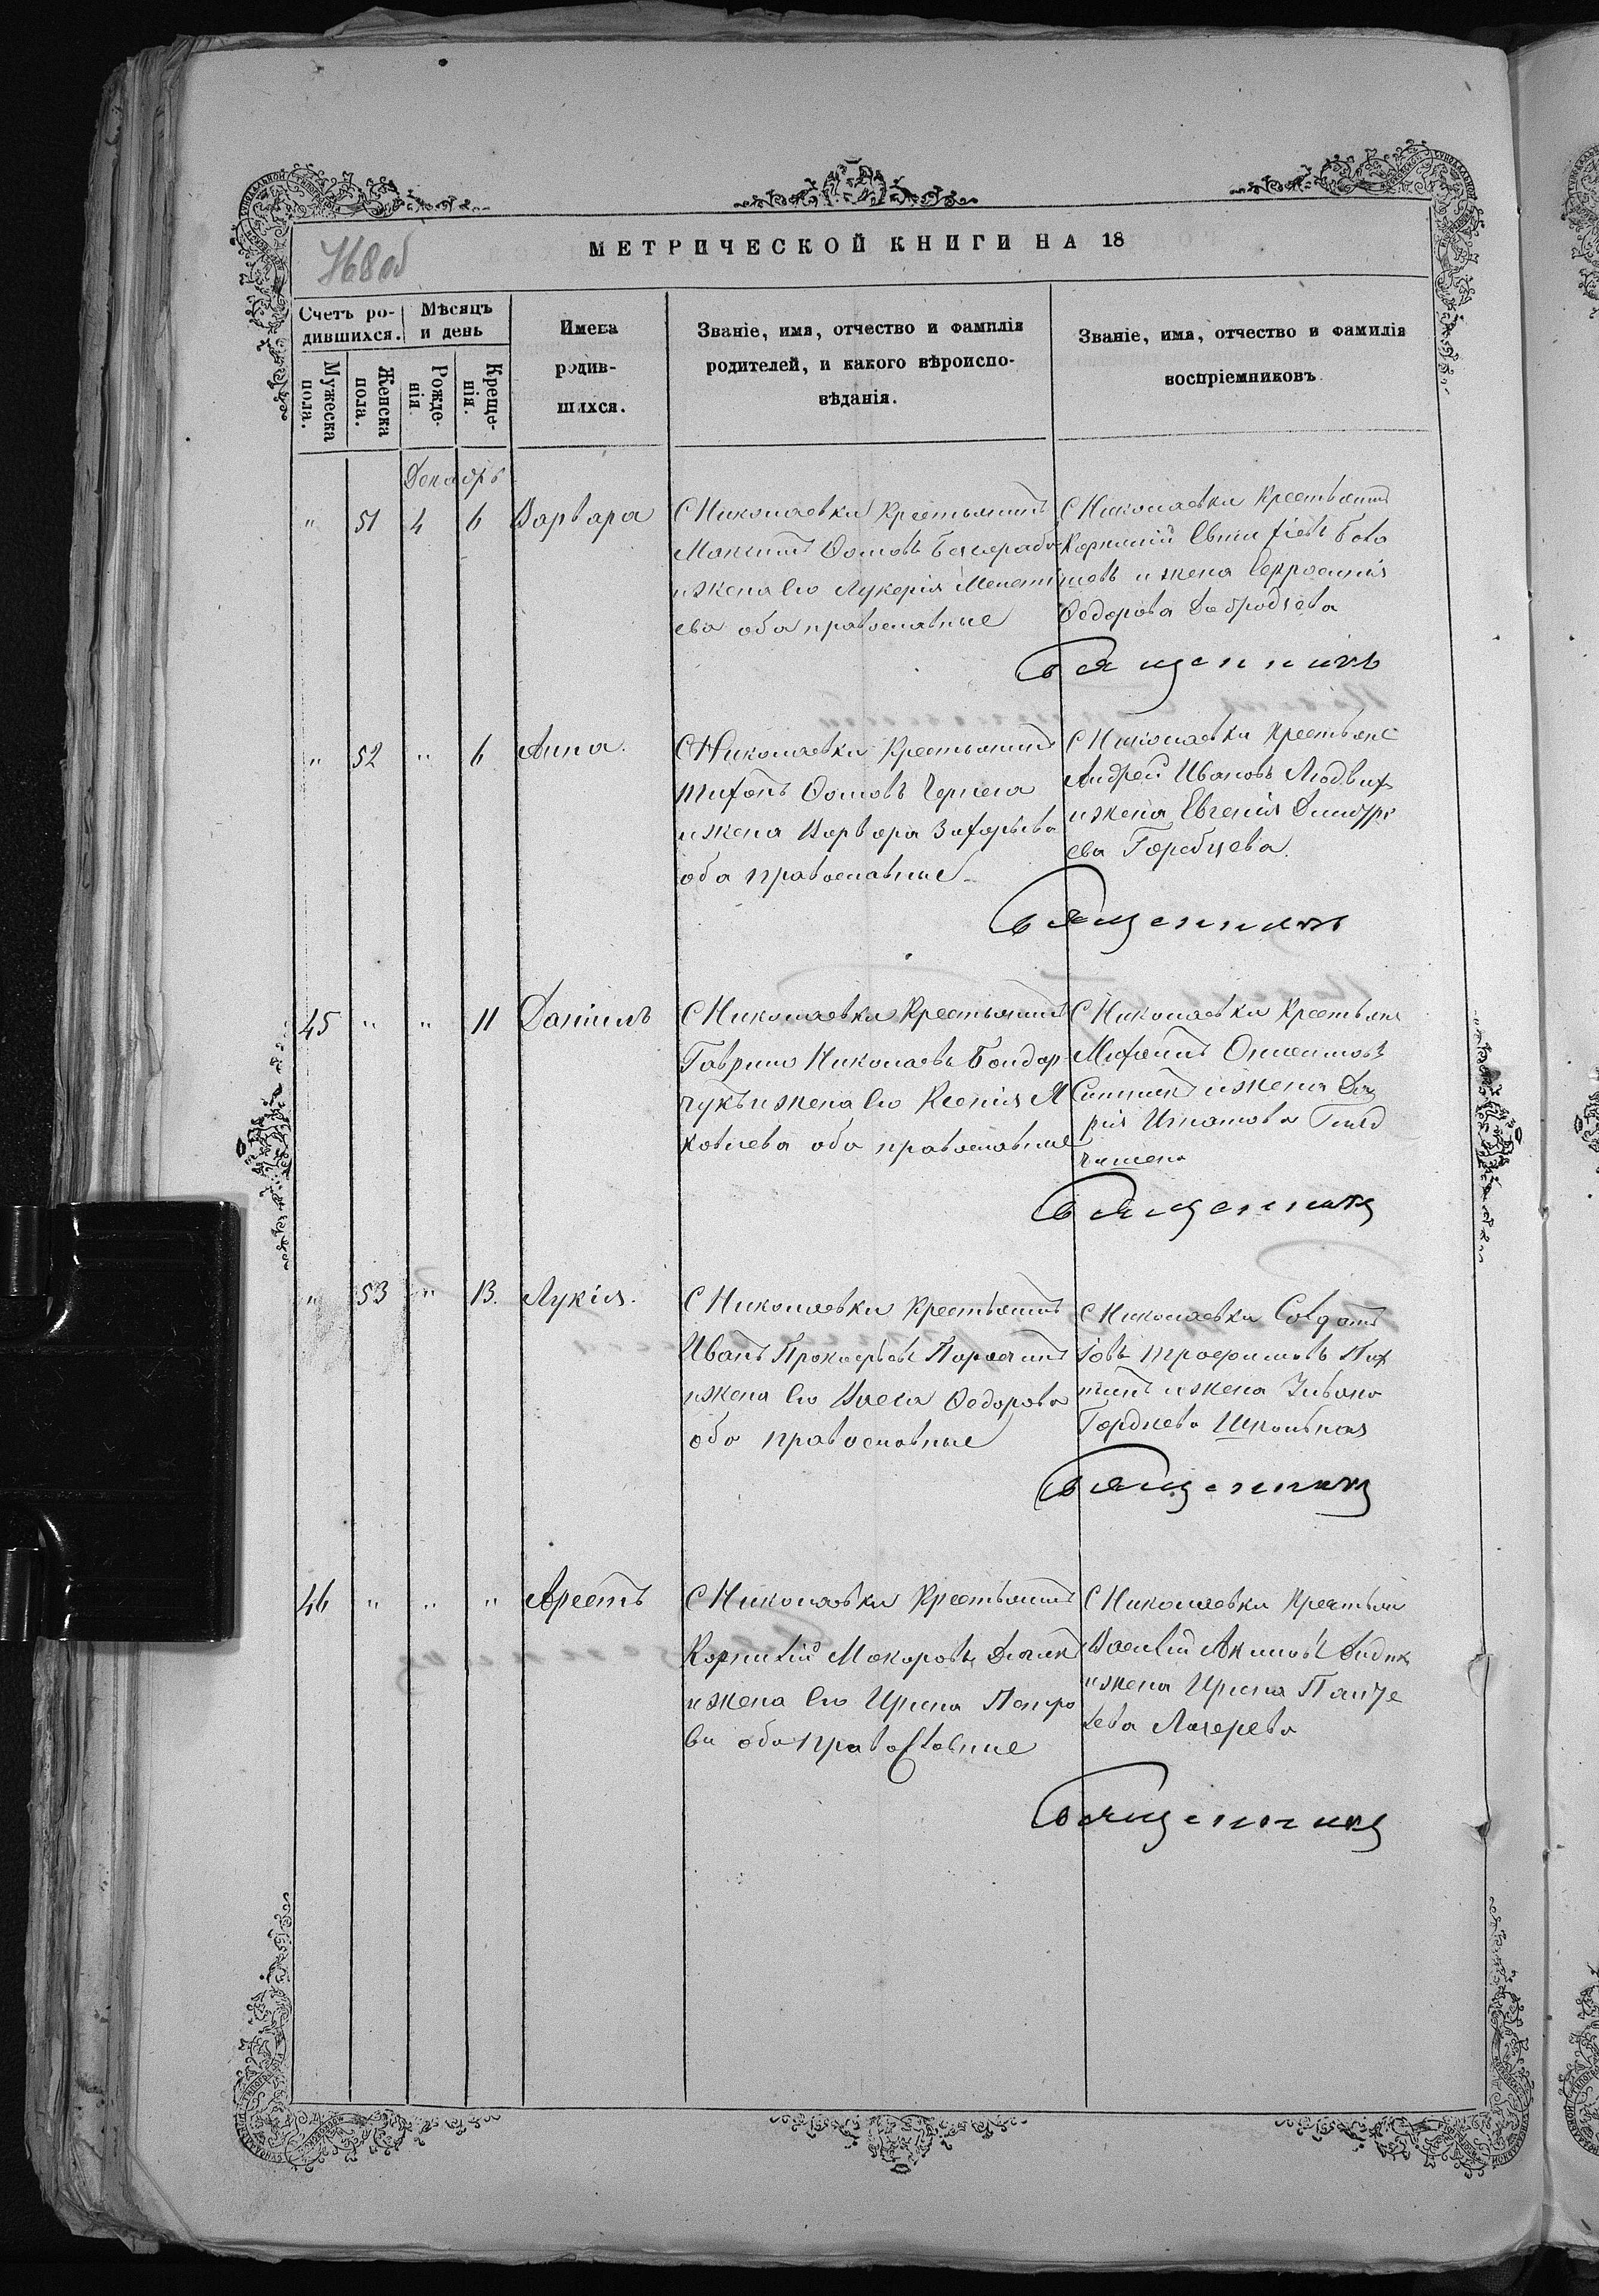 768 об
МЕТРИЧЕСКОЙ КНИГИ НА 18
Счетъ ро-
дившихся.
Мѣсяцъ
и день
Мужеска
пола.
Женска
пола.
Рожде-
нія.
Креще-
нія.
Имена
родив-
шихся.
Званіе, имя, отчество и фамилія
родителей, и какого вѣроиспо-
вѣданія.
Званіе, имя, отчество и фамилія
воспріемниковъ
Декабрь
" 51 4 6 Варвара
С Николаевки Крестьянинъ
Максимъ Фомовъ
и жена его Лукерія Мелеті
ева оба православные
С Николаевки Крестьянинъ
Корнилій
и жена Евфросинія
Федорова
Священникъ
" 52 " 6 Анна.
С Николаевки Крестьянинъ
Тихонъ Фомовъ
и жена Варвара Захарьева
оба православные
С Николаевки Крестьянс
Андрей Ивановъ
и жена Евгенія Дмитрі
ева Горобцева.
Священникъ
45 " " 11 Даніилъ
С Николаевки Крестьянинъ
Гаврило Николаевъ Бондар
чукъ и жена его Ксенія Я
ковлева оба православные
С Николаевки Крестьянс
и жена Да
рія Игнатова
Священникъ
" 53 " 13. Лукія.
С Николаевки Крестьянинъ
Иванъ Прокофьевъ
и жена его Васса Федорова
оба православные
С Николаевки Солдатъ
Іовъ Трофимовъ
и жена
Гордѣева Школьная
Священникъ
46 " " " Арестъ
С Николаевки Крестьянинъ
Корнилій Макаровъ
и жена его Ирина Петро
ва оба православные
С Николаевки Крестьян
Василій Акимовъ Дидык
и жена Ирина Панте
лева
Священникъ